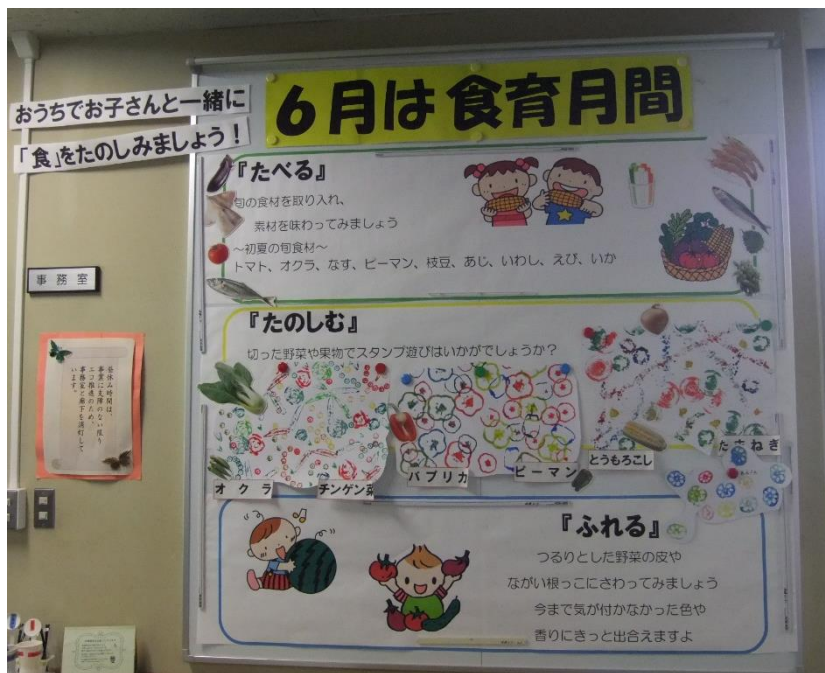 6月は食育月間
おうちでお子さんと一緒に
「食」をたのしみましょう!
『たべる』
旬の食材を取り入れ、
素材を味わってみましょう
~初夏の旬食材~
トマト、オクラ、なす、ピーマン、枝豆、あじ、いわし、えび、いか
『たのしむ』
切った野菜や果物でスタンプ遊びはいかがでしょうか?
オクラ
チンゲン菜
パプリカ
ピーマン
とうもろこし
たまねぎ
『ふれる』
つるりとした野菜の皮や
ながい根っこにさわってみましょう
今まで気が付かなかった色や
香りにきっと出合えますよ
事務室
昼休み時間は、
事業に支障のない限り
エコ推進のため、
事務室と廊下を消灯して
います。